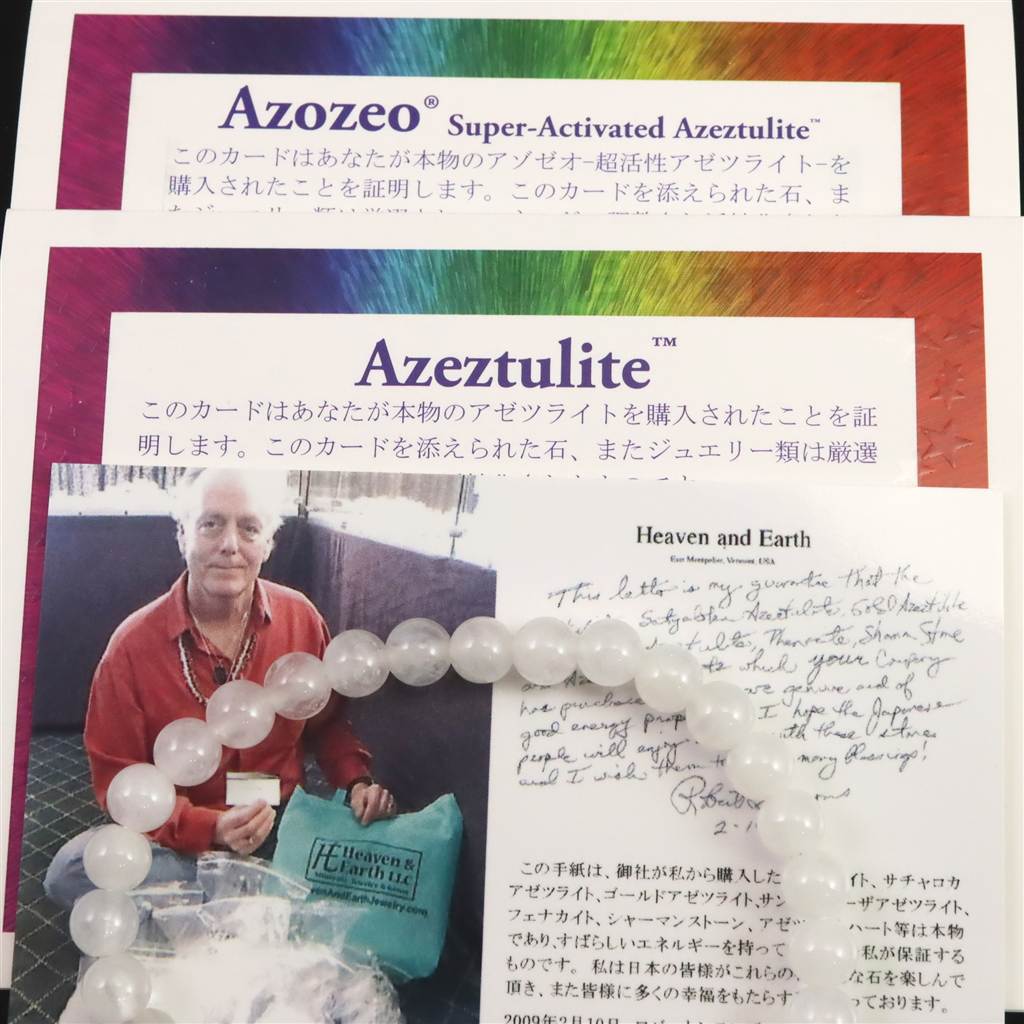 Azozeo® Super-Activated Azeztulite™
このカードはあなたが本物のアゾゼオ-超活性アゼツライト-を
購入されたことを証明します。このカードを添えられた石、ま
Azeztulite™
このカードはあなたが本物のアゼツライトを購入されたことを証
明します。このカードを添えられた石、またジュエリー類は厳選
Heaven and Earth
East Montpelier, Vermont, USA
This letter is my guarantee that the
Azeztulite, Gold Azeztulite
Phenacite, Shaman Stone
which your Company
has purchase are genuine and of
good energy I hope the Japanese
people will enjoy with these stones
and I wish them many blessings!
Robert
HE Heaven &
Earth LLC
この手紙は、御社が私から購入した イト、サチャロカ
アゼツライト、ゴールドアゼツライト、サン ーザアゼツライト、
フェナカイト、シャーマンストーン、アゼツ ハート等は本物
であり、すばらしいエネルギーを持って 私が保証する
ものです。私は日本の皆様がこれらの な石を楽しんで
頂き、また皆様に多くの幸福をもたらす っております。
2009年2月10日